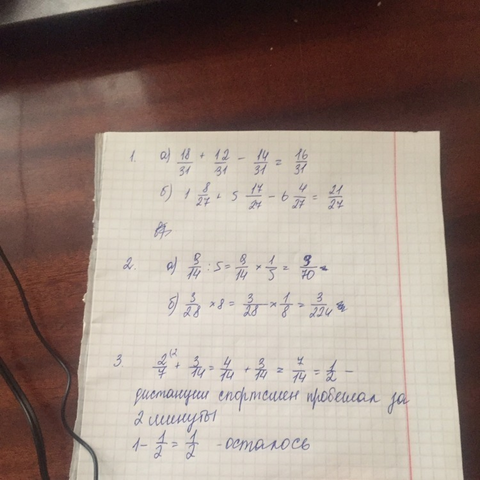 1. а) 18/31 + 12/31 - 14/31 = 16/31
б) 1 8/27 + 5 17/27 - 6 4/27 = 21/27
2. а) 9/14 : 5 = 9/14 × 1/5 = 9/70
б) 3/28 × 8 = 3/28 × 1/8 = 3/224
3. 2/7 + 3/14 = 4/14 + 3/14 = 7/14 = 1/2 -
дистанции спортсмен пробежал за
2 минуты
1 - 1/2 = 1/2 - осталось